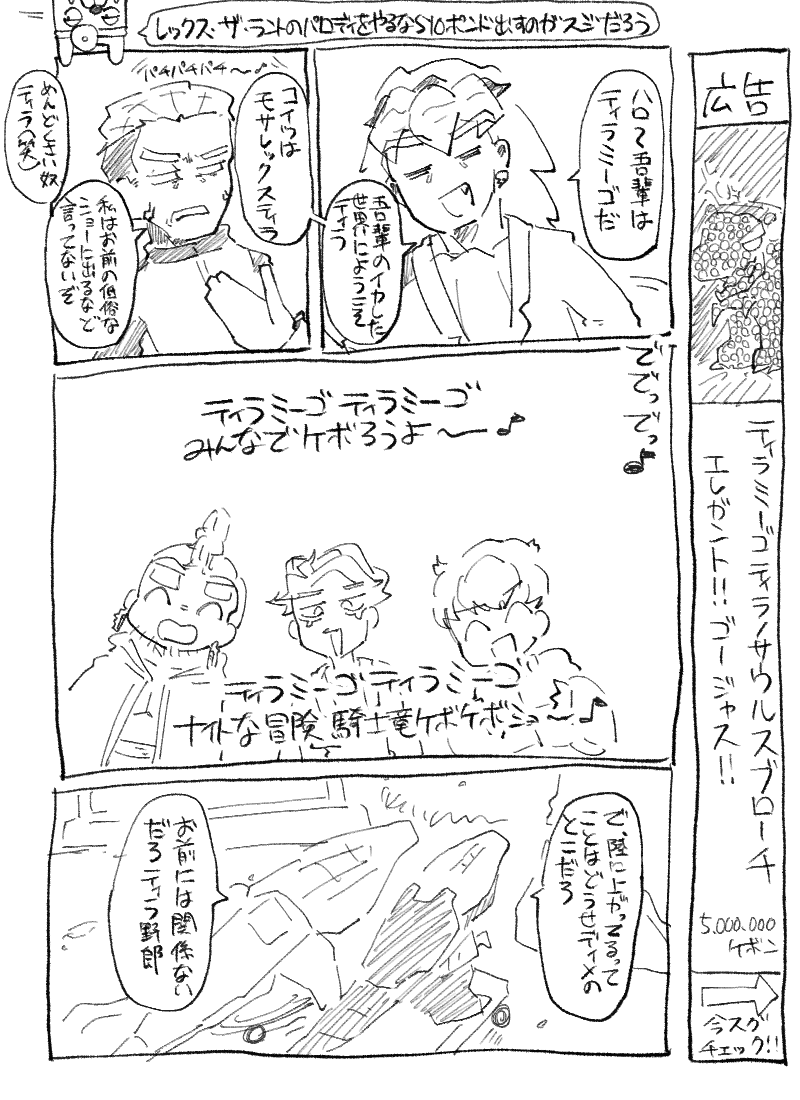 レックス・ザ・ラントのパロディをやるなら10ポンド出すのがスジだろう
ハロ〜吾輩は
ティラミーゴだ
吾輩のイカした
世界にようこそ
ティラ
パチパチパチ〜♪
コイツは
モサレックスティラ
めんどくさい奴
ティラ(笑)
私はお前の低俗な
ショーに出るなど
言ってないぞ
ででっでっ♪
ティラミーゴ ティラミーゴ
みんなでケボろうよ〜♪
ティラミーゴ ティラミーゴ
ナイトな冒険 騎士竜ケボケボショ〜♪
で、陸に上がってるって
ことはどうせディメの
とこだろ
お前には関係ない
だろティラ野郎
広告
ティラミーゴティラノサウルスブローチ
エレガント!!ゴージャス!!
5.000.000
ケボン
今スグ
チェック!!